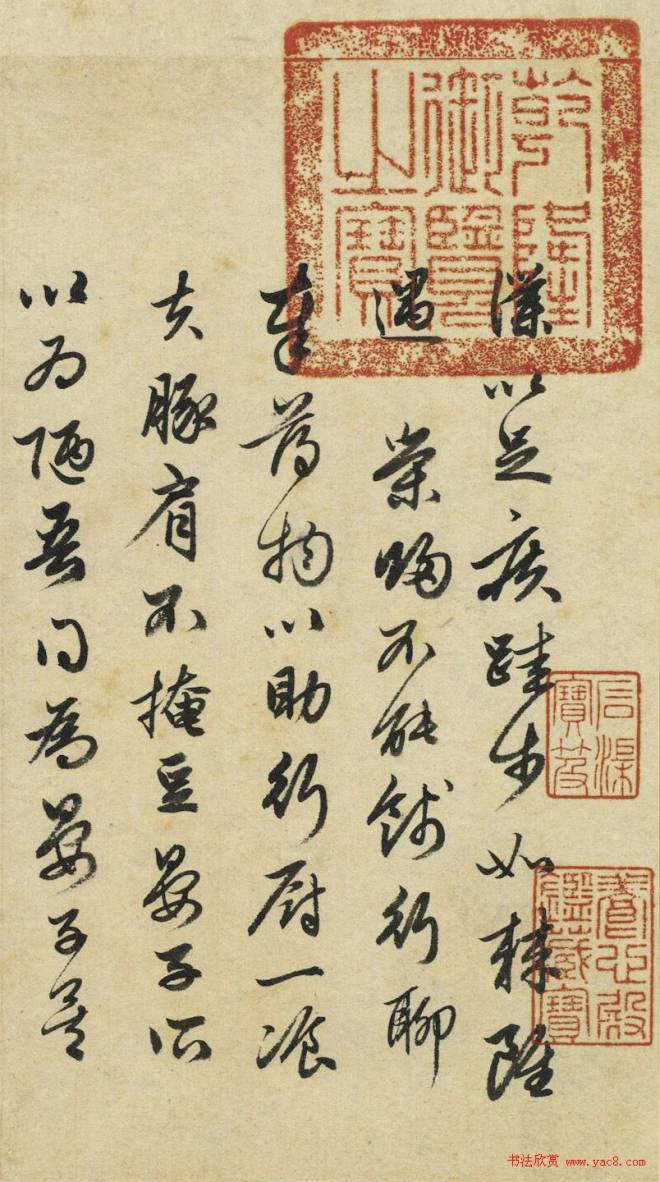 乾隆
御覽
之寶
漢以足疾跬步如棘雖
遇 榮歸不能餞行聊
奉薄物以助行厨一飡
夫豚肩不掩豆晏子所
以為陋吾同為晏子
石渠
寶笈
養心殿
鑑藏寶
书法欣赏 www.yac8.com